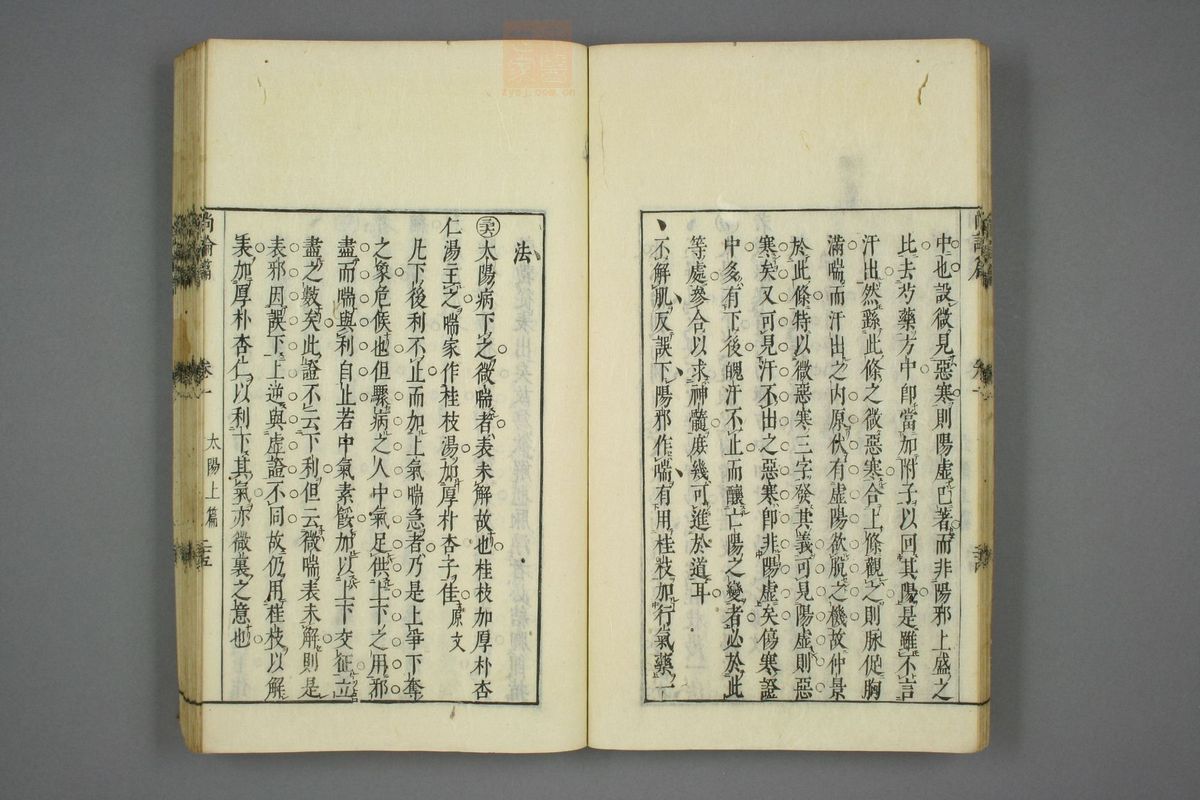 中也設微見惡寒則陽虛已著而非陽邪上盛之
比去芍藥方中卽當加附子以回其陽是雖不言
汗出然繇此條之微惡寒合上條觀之則脉促胸
滿喘而汗出之内原伏有虛陽欲脫之機故仲景
於此條特以微惡寒三字發其義可見陽虛則惡
寒矣又可見汗不出之惡寒卽非陽虛矣傷寒證
中多有下後魄汗不止而釀亡陽之變者必於此
等處參合以求神髓庶幾可進於道耳
不解肌反誤下陽邪作喘有用桂枝加行氣藥一
法
太陽病下之微喘者表未解故也桂枝加厚朴杏
仁湯主之喘家作桂枝湯加厚朴杏子佳原文
凡下後利不止而加上氣喘急者乃是上爭下奪
之象危候也但驟病之人中氣足供上下之用邪
盡而喘與利自止若中氣素餒加以上下交征立
盡之數矣此證不云下利但云微喘表未解則是
表邪因誤下上逆與虛證不同故仍用桂枝以解
表加厚朴杏仁以利下其氣亦微裏之意也
尚論篇
卷一
太陽上篇
二十五